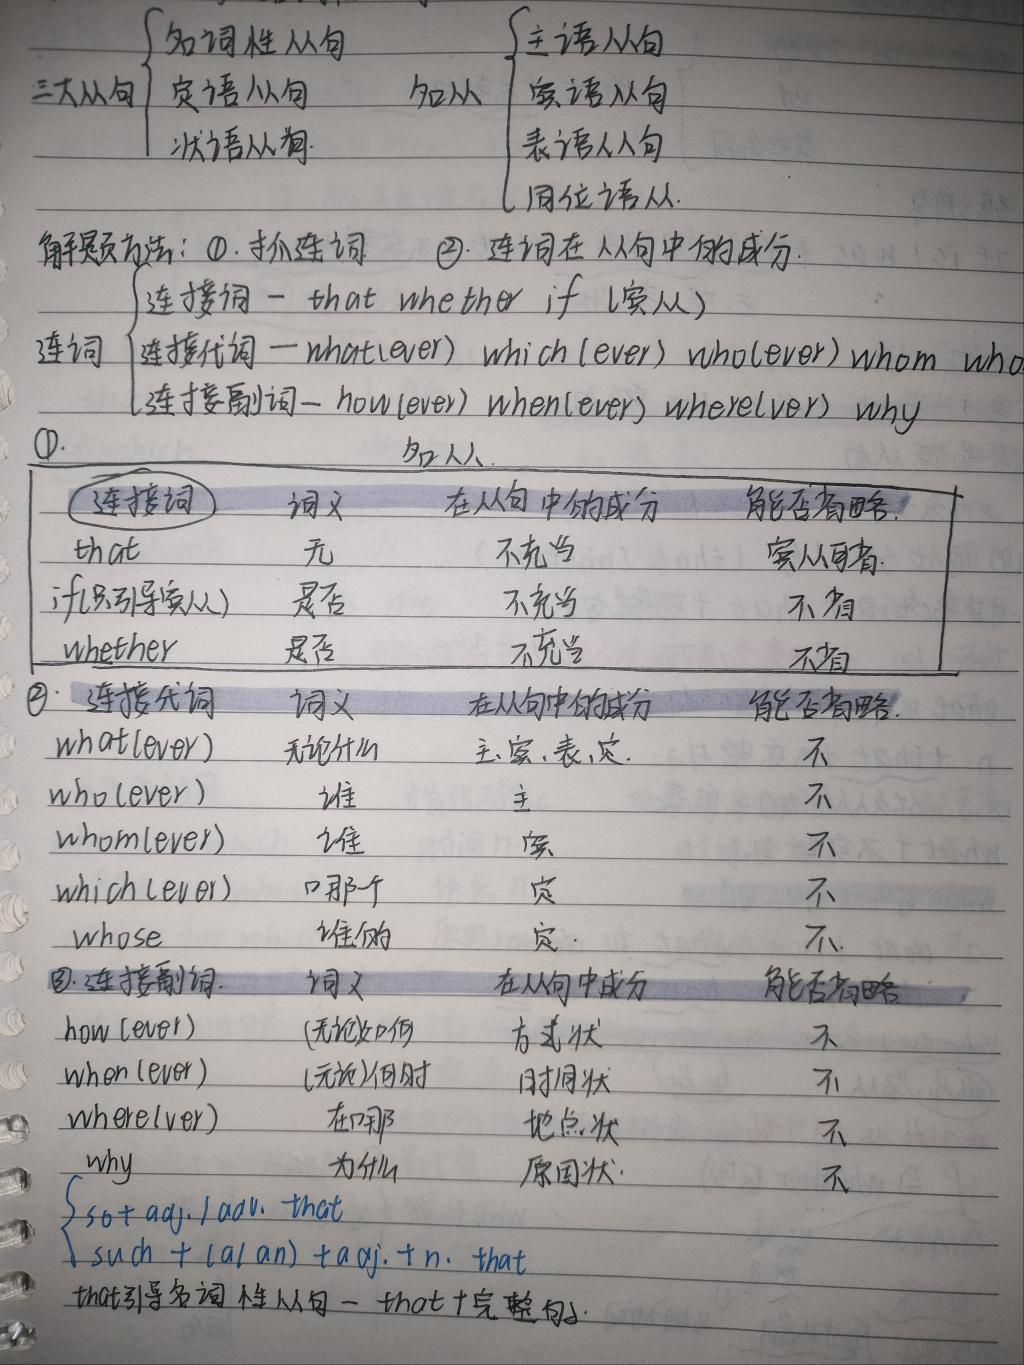 名词性从句 主语从句
三大从句 定语从句 名从 宾语从句
状语从句. 表语从句
同位语从.
解题方法: ①. 抓连词 ②. 连词在从句中的成分.
连接词 - that whether if (宾从)
连词 连接代词 - what(ever) which(ever) who(ever) whom who
连接副词 - how(ever) when(ever) where(ver) why
①. 名从.
连接词 词义 在从句中的成分 能否省略.
that 无 不充当 宾从可省.
if(只引导宾从) 是否 不充当 不省
whether 是否 不充当 不省
②. 连接代词 词义 在从句中的成分 能否省略.
what(ever) 无论什么 主、宾、表、定. 不
who(ever) 谁 主 不
whom(ever) 谁 宾 不
which(ever) 哪一个 定 不
whose 谁的 定. 不.
③. 连接副词. 词义 在从句中成分 能否省略
how(ever) (无论)如何 方式状 不
when(ever) (无论)何时 时间状 不
where(ver) 在哪 地点状 不
why 为什么 原因状. 不
so + adj. / adv. that
such + (a/an) + adj. + n. that
that引导名词性从句 - that + 完整句.